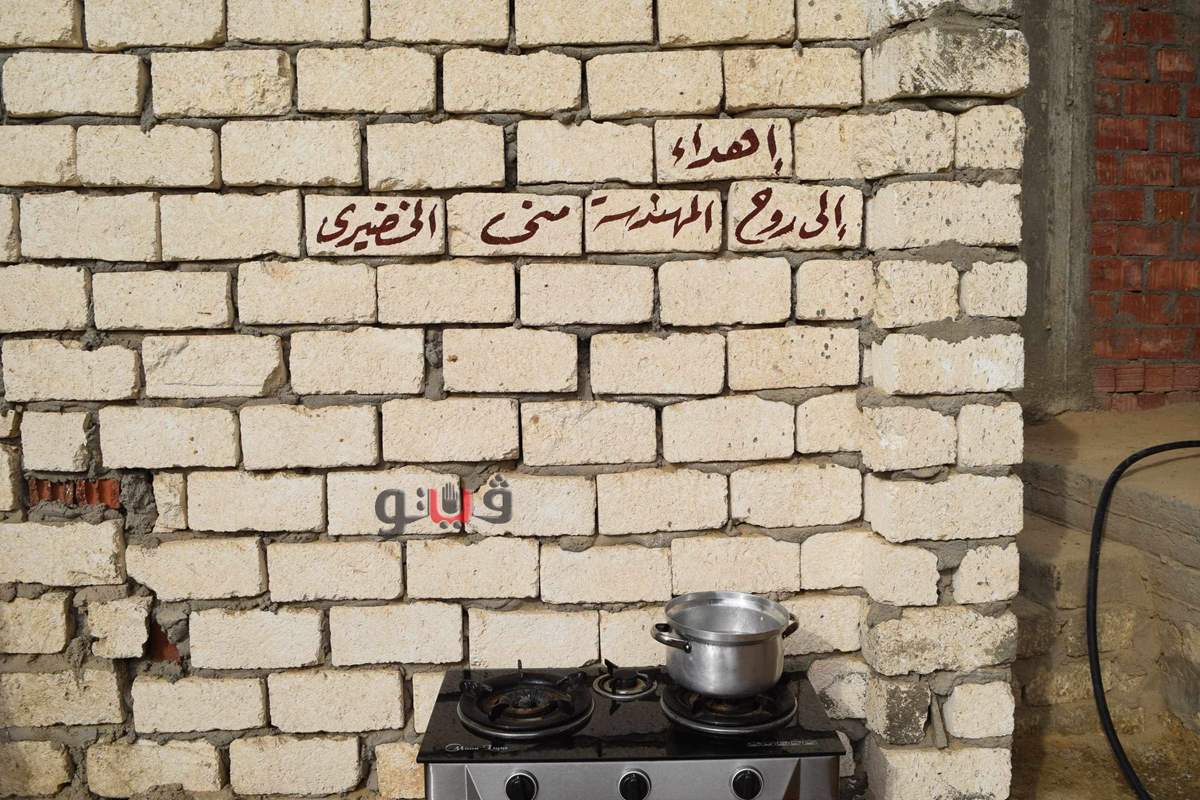 إهداء
إلى روح المهندسة منى الخضيرى
ڤيتو